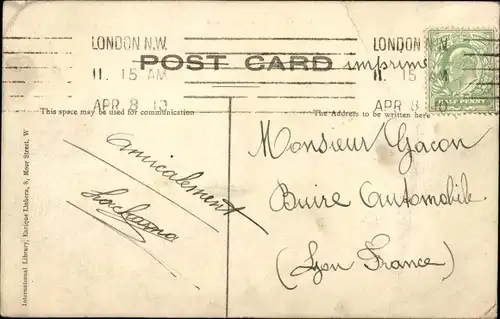 LONDON N.W.
11. 15 AM
APR 8 10
LONDON N.W.
11. 15 AM
APR 8 10
POST CARD
imprimé
This space may be used for communication
The Address to be written here
amicalement
Monsieur Gacon
Buire Automobile
(Lyon France)
International Library, Enrique Linbers, 8, Moor Street, W